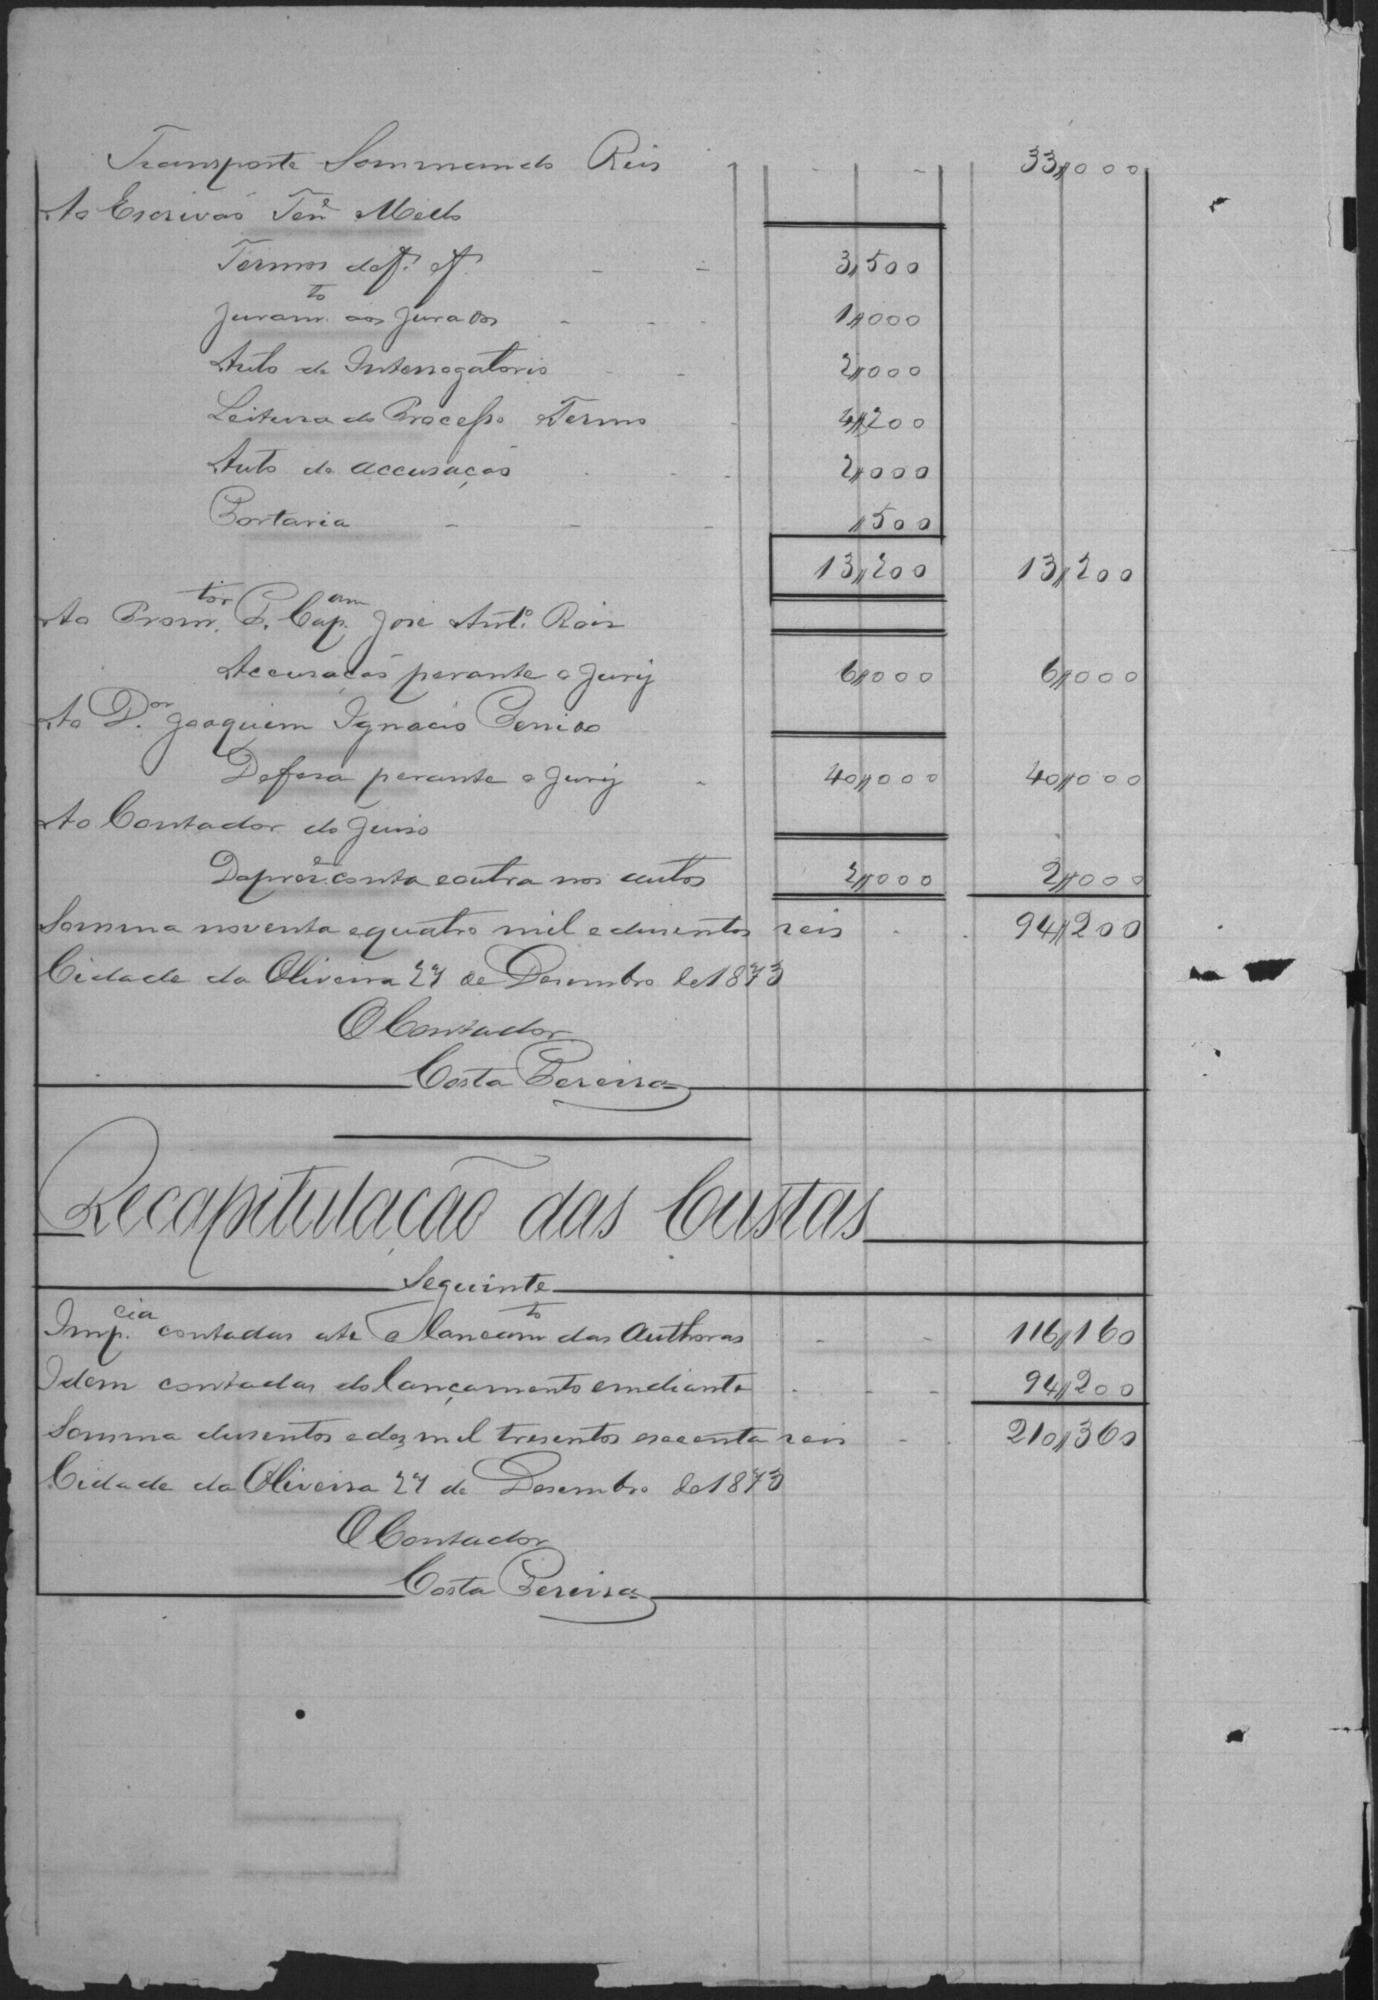 Transporte Sommando Reis - - - 33,,000
Ao Escrivão Ten.e Mello
Termos de f. af. - - 3,,500
Juram.to aos Jurados - - - 1,,000
Auto de Interrogatorio - - 2,,000
Leitura do Processo eTermo - 4,,200
Auto de accusação - - 2,,000
Portaria - - - ,,500
13,,200 13,,200
Ao Prom.tor P. Cap.am José Ant.o Reis
Accusação perante o Jury 6,,000 6,,000
Ao D.or Joaquim Ignacio
Defesa perante o Jury - 40,,000 40,,000
Ao Contador do Juiso
Dapres.e conta eoutra nos autos 2,,000 2,,000
Somma noventa equatro mil edusentos reis - - 94,,200
Cidade da Oliveira 27 de Desembro de 1873
O Contador
Costa Pereira
Recapitulação das Custas
Seguinte
Imp.cia contadas até o lançam.to das Authoras - - - 116,,160
Idem contadas do lançamento emdiante - - - 94,,200
Somma dusentos edez mil tresentos esecenta reis - - 210,,360
Cidade da Oliveira 27 de Desembro de 1873
O Contador
Costa Pereira